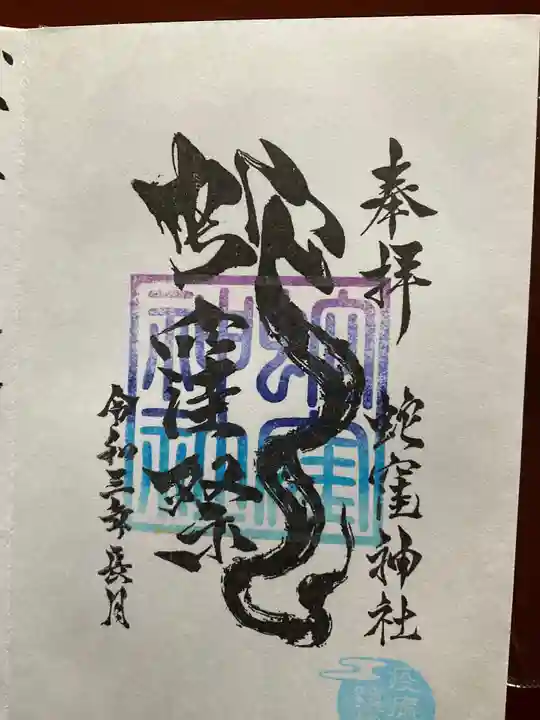 奉拝
蛇窪神社
蛇窪祭
令和三年長月
蛇窪
神社